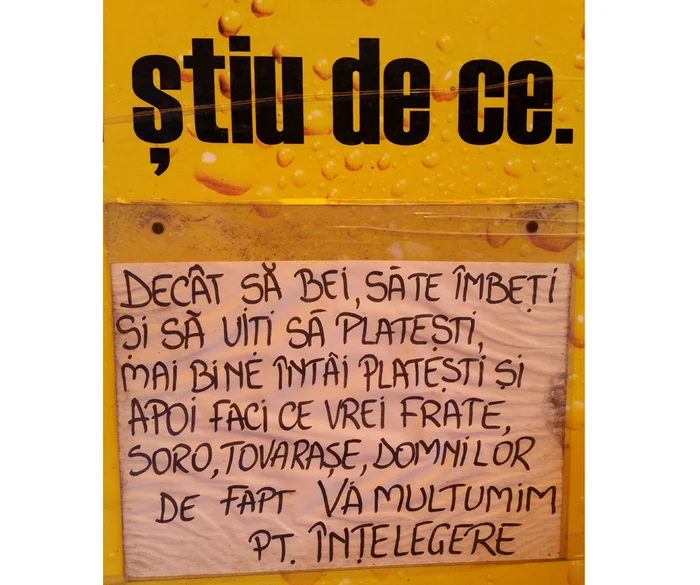 știu de ce.
DECÂT SĂ BEI, SĂTE ÎMBEȚI
ȘI SĂ UITI SĂ PLATEȘTI,
MAI BINE ÎNTÂI PLATEȘTI ȘI
APOI FACI CE VREI FRATE,
SORO, TOVARAȘE, DOMNILOR
DE FAPT VĂ MULTUMIM
PT. ÎNȚELEGERE